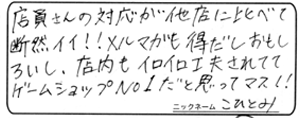 店員さんの対応が他店に比べて
断然イイ!!メルマガも得だしおもし
ろいし、店内もイロイロ工夫されてて
ゲームショップNO1だと思ってマス!!
ニックネーム こひとみ